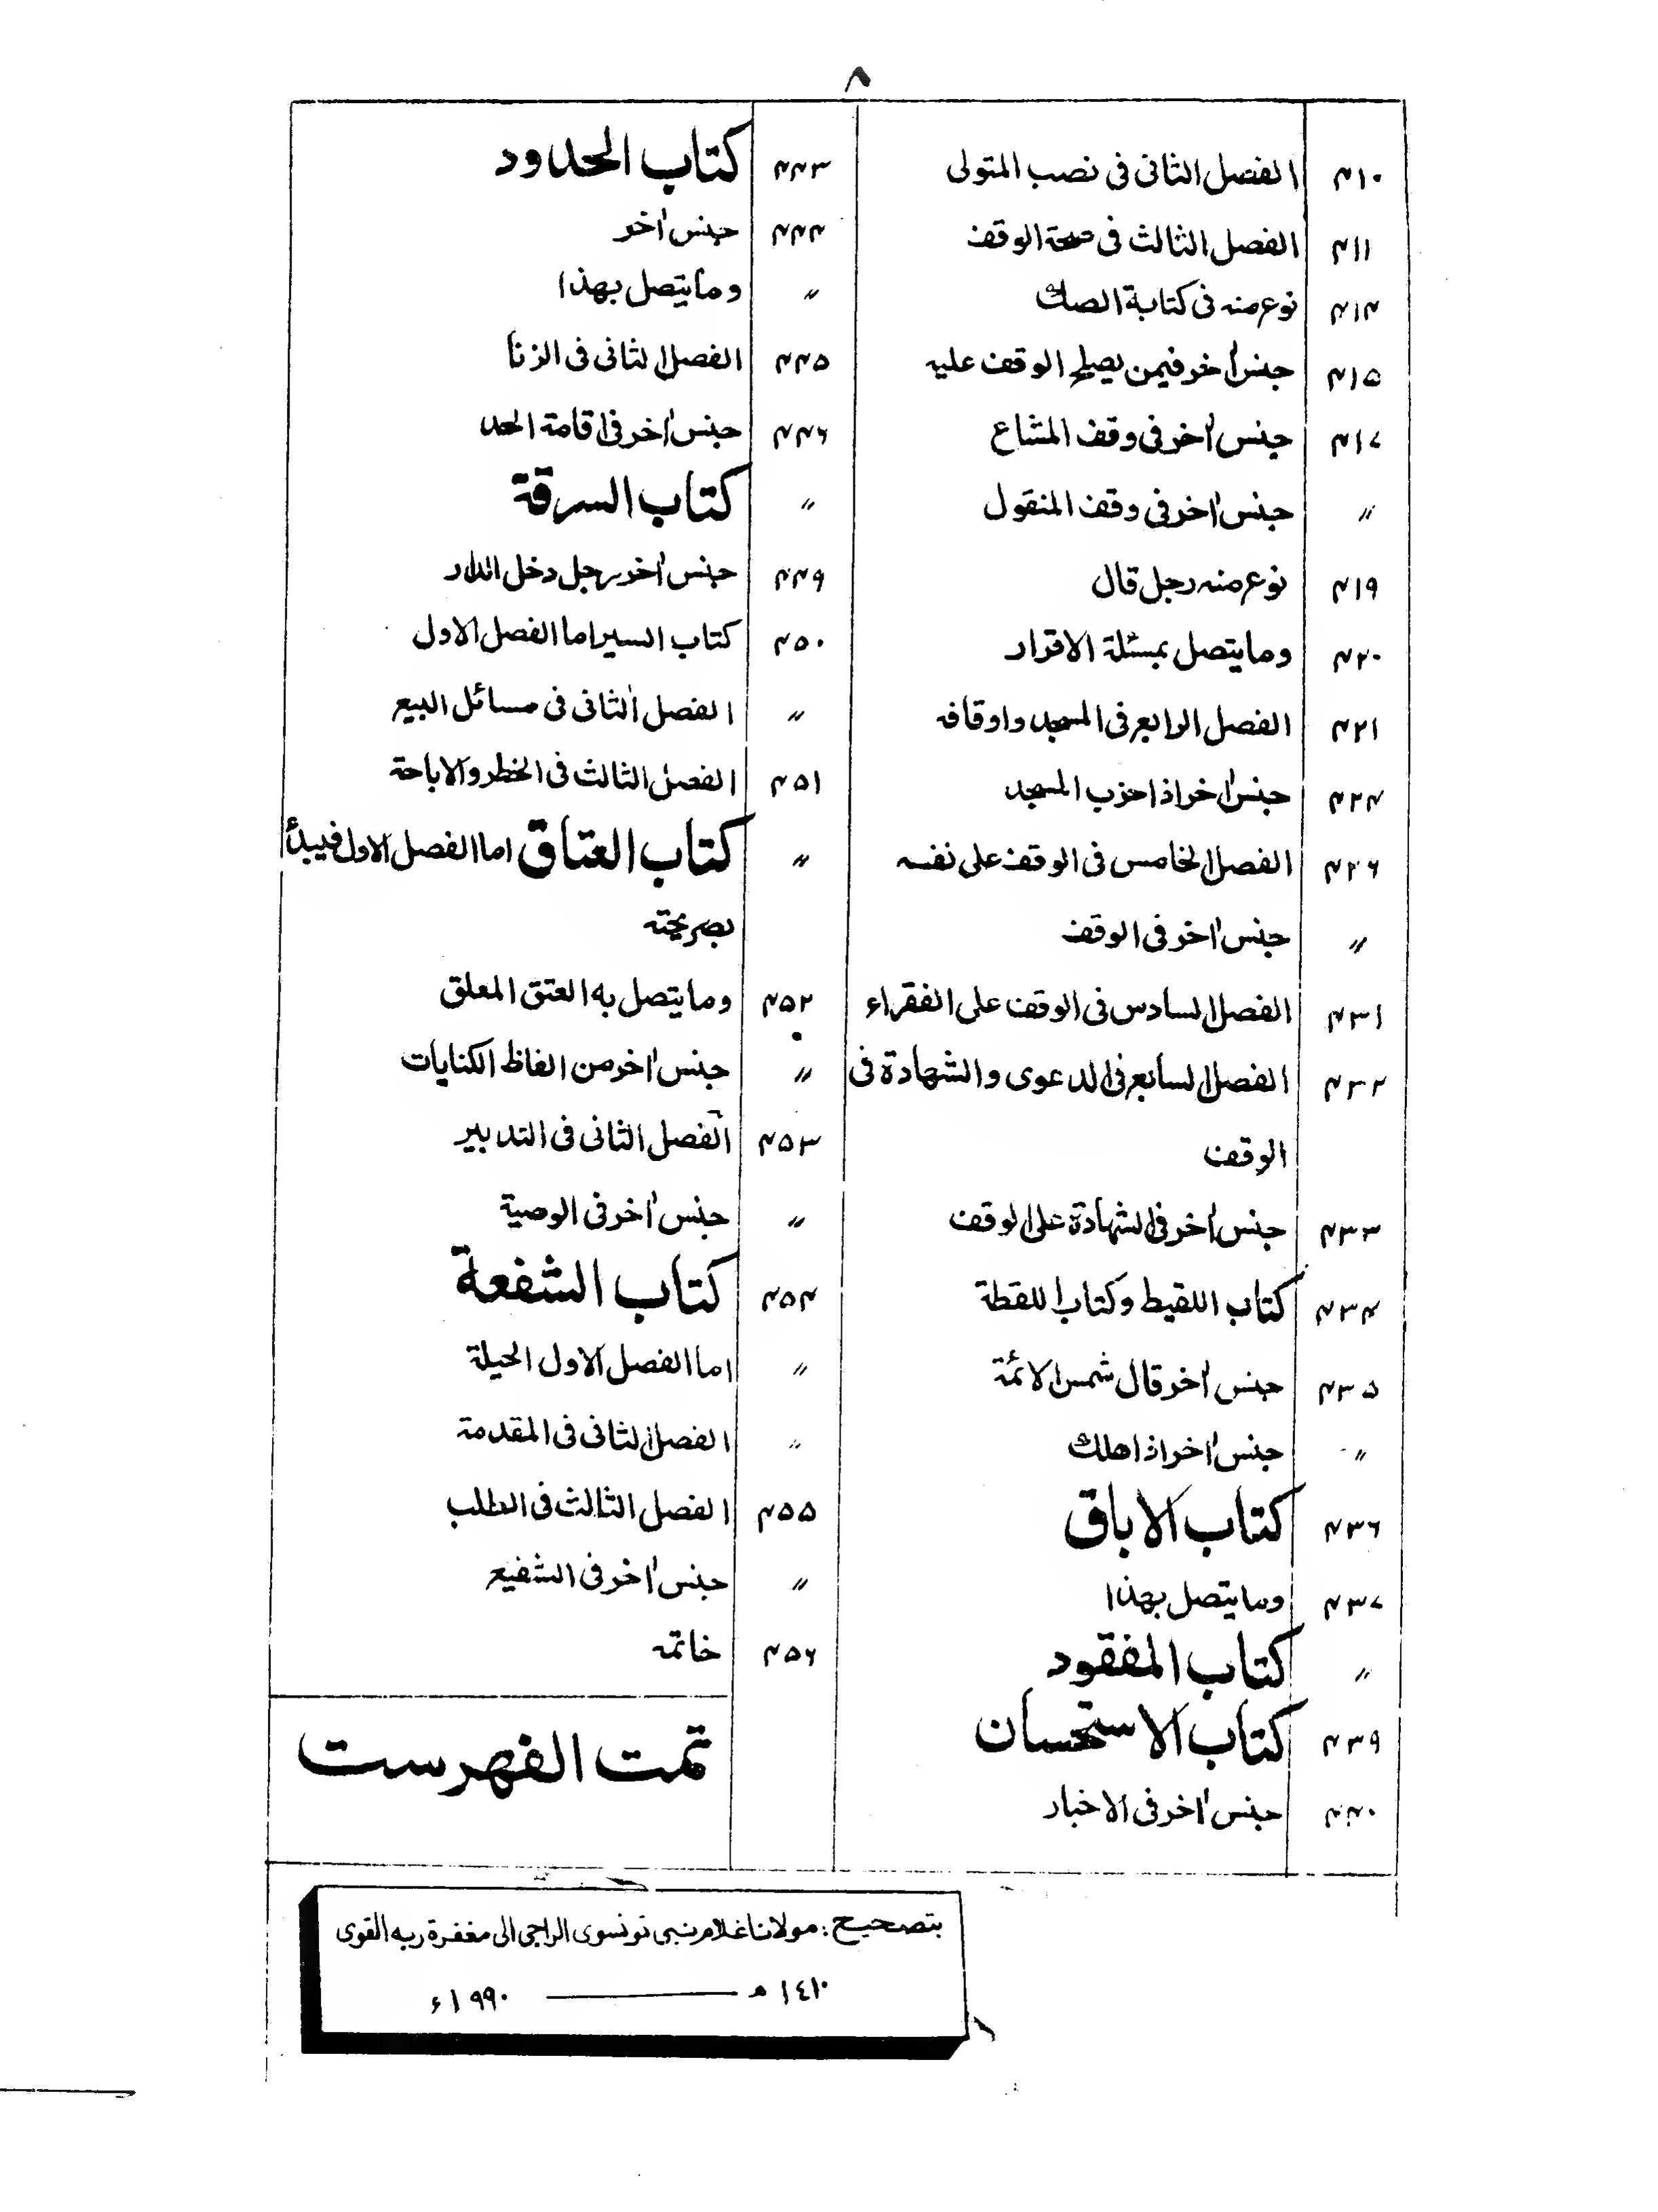 ٨
٤١٠ الفصل الثانی فی نصب المتولی
٤١١ الفصل الثالث فی صحة الوقف
٤١٤ نوع منه فی کتابة الصك
٤١٥ جنس اٰخر فیمن یصلح الوقف علیه
٤١٧ جنس اٰخر فی وقف المشاع
〃 جنس اٰخر فی وقف المنقول
٤١٩ نوع منه رجل قال
٤٢٠ وما یتصل بمسئلة الاقرار
٤٢١ الفصل الرابع فی المسجد واوقافه
٤٢٤ جنس اٰخر اذا خرب المسجد
٤٢٦ الفصل الخامس فی الوقف علی نفسه
〃 جنس اٰخر فی الوقف
٤٣١ الفصل السادس فی الوقف علی الفقراء
٤٣٢ الفصل السابع فی الدعوی والشهادة فی
الوقف
٤٣٣ جنس اٰخر فی الشهادة علی الوقف
٤٣٤ کتاب اللقیط وکتاب اللقطة
٤٣٥ جنس اٰخر قال شمس الائمة
〃 جنس اٰخر اذا هلك
٤٣٦ کتاب الاباق
٤٣٧ وما یتصل بهذا
〃 کتاب المفقود
٤٣٩ کتاب الاستحسان
٤٤٠ جنس اٰخر فی الاخبار
٤٤٣ کتاب الحدود
٤٤٤ جنس اٰخر
〃 وما یتصل بهذا
٤٤٥ الفصل الثانی فی الزنا
٤٤٦ جنس اٰخر فی اقامة الحد
〃 کتاب السرقة
٤٤٩ جنس اٰخر رجل دخل الدار
٤٥٠ کتاب السیر اما الفصل الاول
〃 الفصل الثانی فی مسائل البیع
٤٥١ الفصل الثالث فی الخطر والاباحة
〃 کتاب العتاق اما الفصل الاول فیبدأ
بصریحته
٤٥٢ وما یتصل به العتق المعلق
〃 جنس اٰخر من الفاظ الکنایات
٤٥٣ الفصل الثانی فی التدبیر
〃 جنس اٰخر فی الوصیة
٤٥٤ کتاب الشفعة
〃 اما الفصل الاول الحیلة
〃 الفصل الثانی فی المقدمة
٤٥٥ الفصل الثالث فی الطلب
〃 جنس اٰخر فی الشفیع
٤٥٦ خاتمه
تمت الفهرست
بتصحیح: مولانا غلام نبی تونسوی الراجی الی مغفرة ربه القوی
١٤١٠ھ ــــــــ ١٩٩٠ء